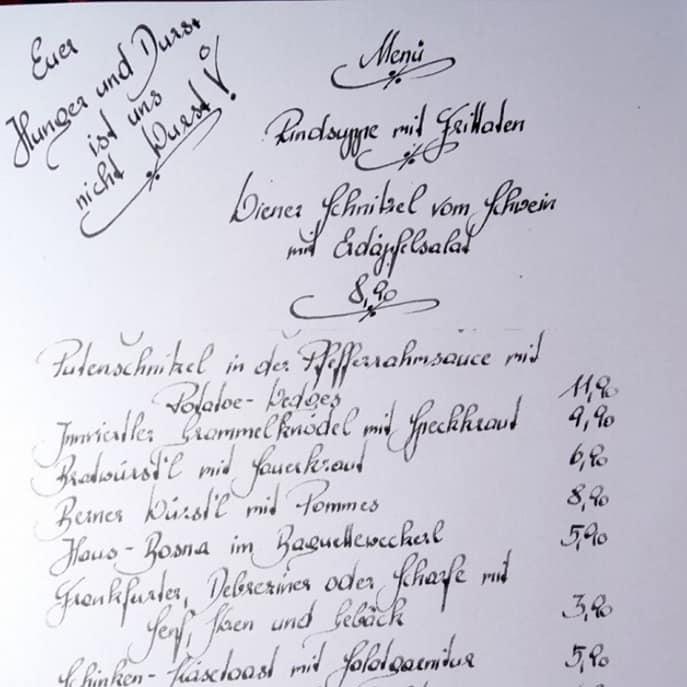 Euer
Hunger und Durst
ist uns
nicht Wurst!
Menü
Rindsuppe mit Frittaten
Wiener Schnitzel vom Schwein
mit Erdäpfelsalat
8,90
Putenschnitzel in der Pfefferrahmsauce mit
Potatoe-Wedges 11,90
Innviertler Grammelknödel mit Speckkraut 9,90
Bratwürst'l mit Sauerkraut 6,90
Berner Würst'l mit Pommes 8,90
Haus-Bosna im Baguetteweckerl 5,90
Frankfurter, Debreziner oder Scharfe mit
Senf, Kren und Gebäck 3,90
Schinken-Käsetoast mit Salatgarnitur 5,90